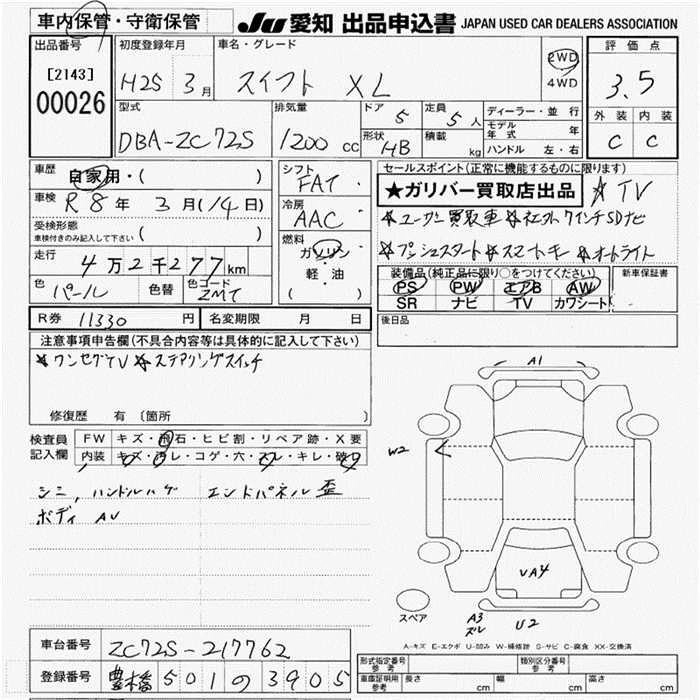 車内保管・守衛保管 JU 愛知 出品申込書 JAPAN USED CAR DEALERS ASSOCIATION
出品番号 初度登録年月 車名・グレード 2WD 評価点
[2143] H25 3月 スイフト XL 4WD 3.5
00026 型式 排気量 ドア 5 定員 5人 ディーラー・並行 外装 内装
DBA-ZC72S 1200cc 形状 HB 積載 kg モデル年式 年 C C
ハンドル 左・右
車歴 自家用・( ) シフト FAT セールスポイント(正常に機能するものに限ります)
車検 R8年 3月(14日) 冷房 AAC ★ガリバー買取店出品 ☆TV
受検形態 ( ) ☆ユーザー買取車 ☆社外7インチSDナビ
車検付きのみ記入して下さい 燃料 ガソリン ☆プッシュスタート ☆スマートキー ☆オートライト
走行 4万2千277km 軽・油 装備品(純正品に限り○をつけてください) 新車保証書
色 パール 色替 色コード ZMT ( ) PS PW エアB AW
SR ナビ TV カワシート
R券 11330円 名変期限 月 日 後日品
注意事項申告欄(不具合内容等は具体的に記入して下さい)
☆ワンセグTV ☆ステアリングスイッチ
A1
修復歴 有 〔箇所 〕
検査員 FW キズ・飛石・ヒビ割・リペア跡・X要
記入欄 内装 キズ・汚レ・コゲ・穴・スレ・キレ・破レ
W2
シミ,ハンドルハゲ エンドパネル歪
ボディ AU
VA4
スペア A3 ズレ U2
A-キズ E-エクボ U-凹み W-補修跡 S-サビ C-腐食 XX-交換済
車台番号 ZC72S-217762
登録番号 豊橋 501 の 3905
形式指定番号 参考 類別区分番号 参考
車庫証明用 参考 長さ cm 幅 cm 高さ cm